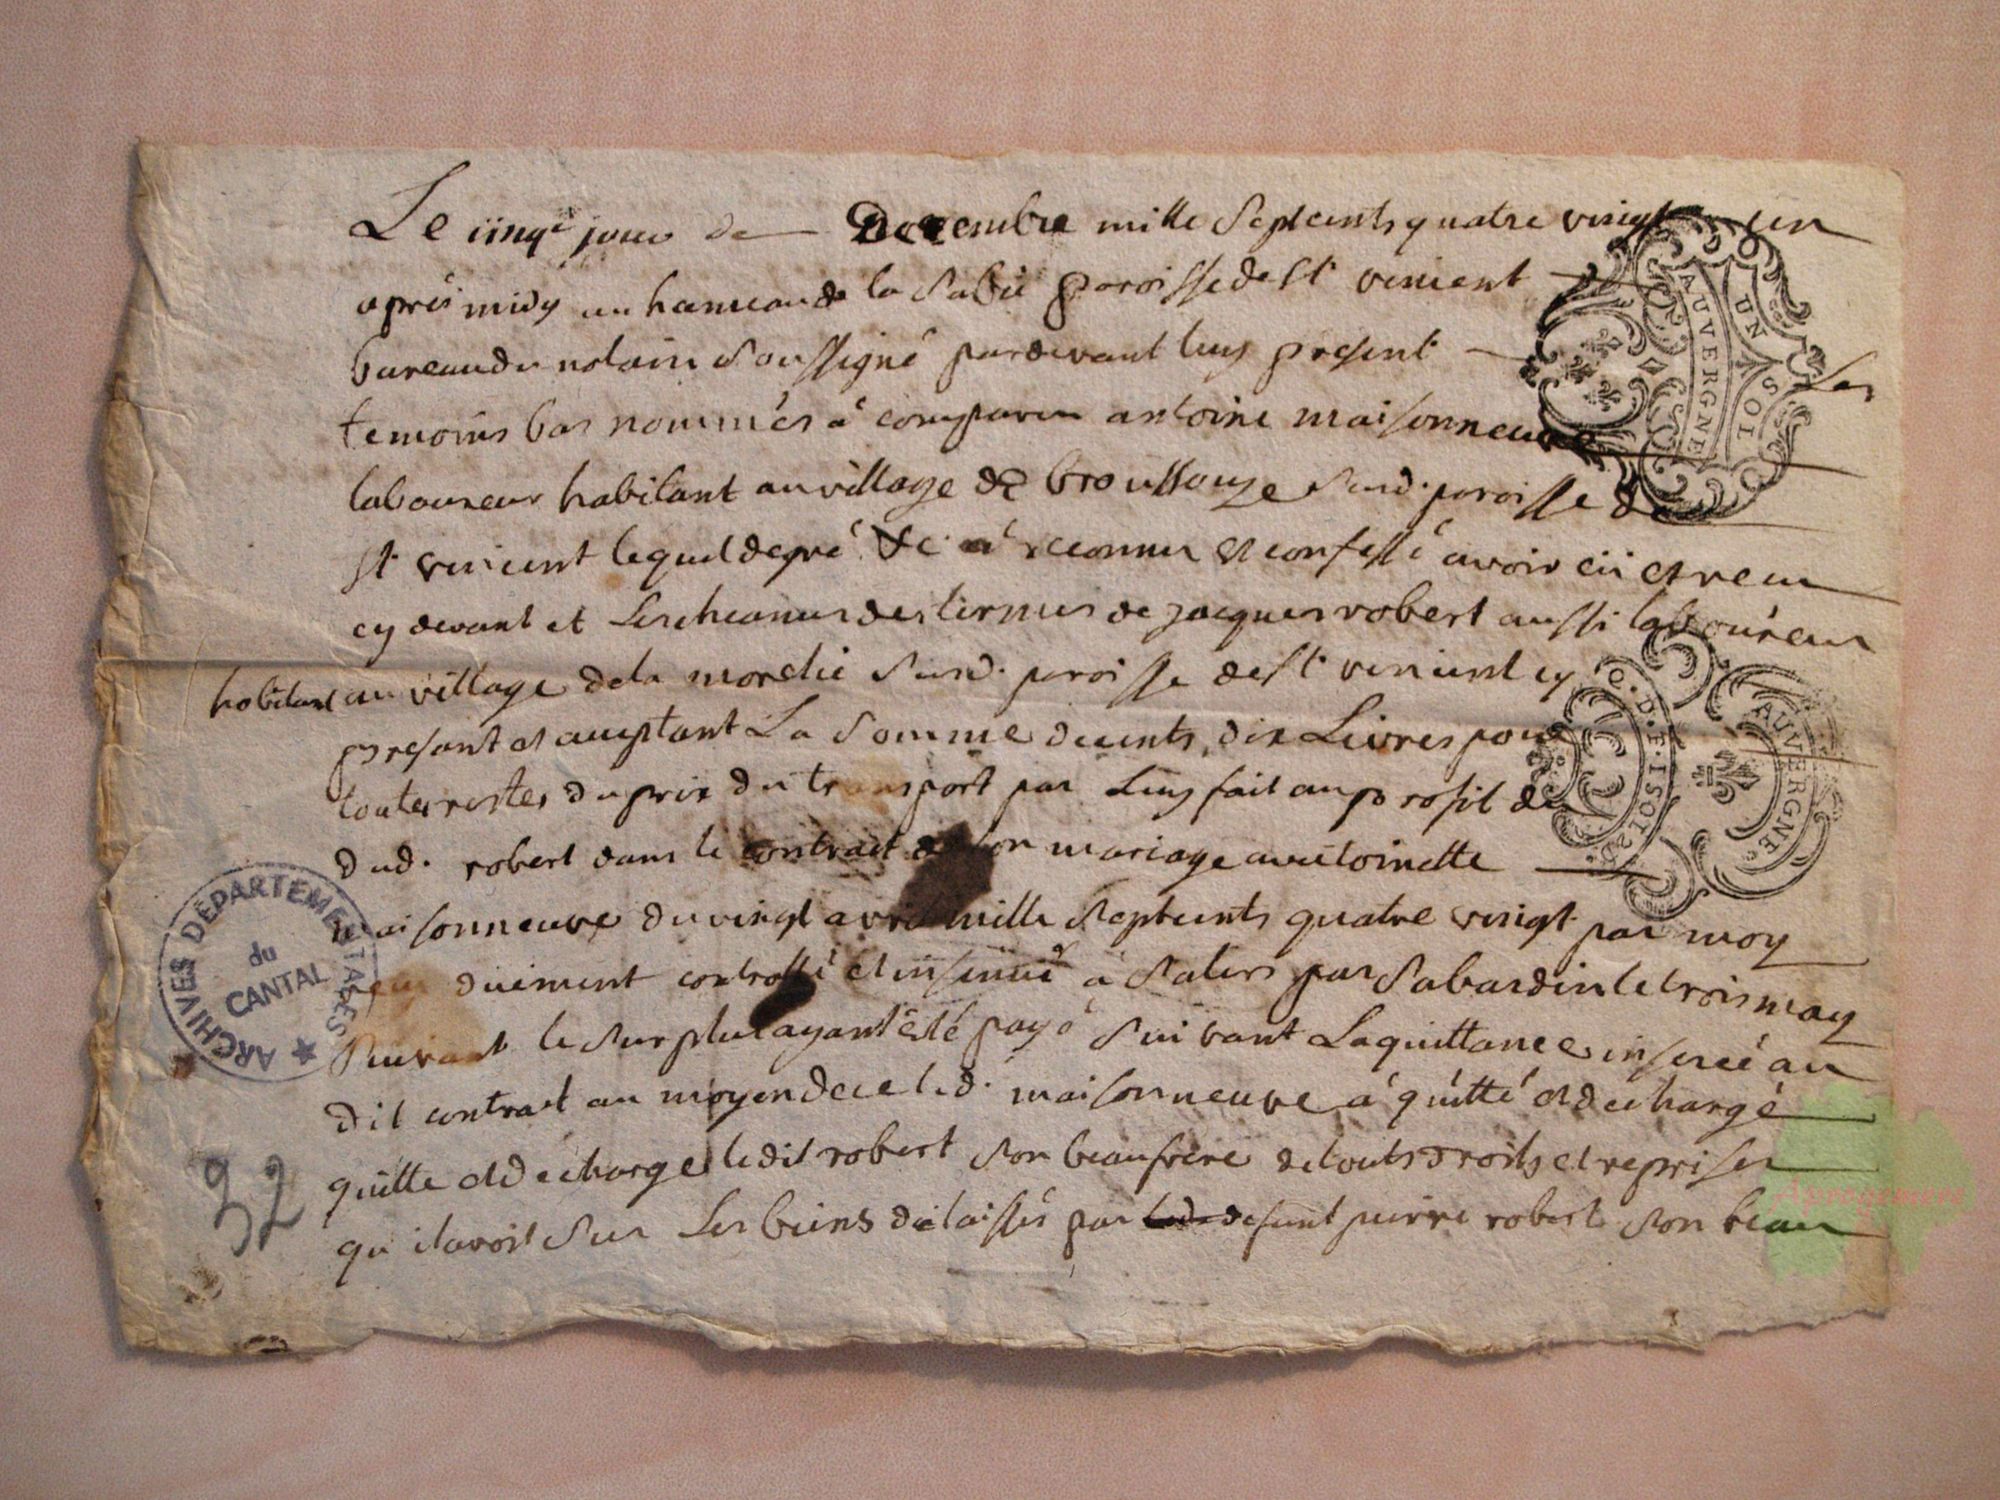 Le cinqe jour de Decembre mille Septcents quatre vingt un
aprés midy au hameau de la Sabie paroisse de St vincent
bureau du notaire Soussigné pardevant luy present Les
temoins bas nommés à comparu antoine maisonneuve
laboureur habitant au village de broussouze Susd. paroisse de
St vincent lequel de gré &c. a reconnu et confessé avoir eü et reçu
cy devant et des termes de jacques robert aussi laboureur
habitant au village dela Susd. paroisse de St vincent cy
present et acceptant La Somme de cents dix Livres pour
toutes restes du prix du transport par Luy fait au profit de
dud. robert dans le contrait de Son mariage avec toinette
maisonneuve du vingt avril mille Septcents quatre vingt par moy
reçu düement controllé et insinué à Salers par Sabardin le trois may
Suivant le Surplus ayant été payé Suivant La quittance inserée au
dit contrat au moyen de ce led. maisonneuve à quitté et dechargé
quitte et decharge ledit robert Son beaufrère de touts droits et reprises
qu'il avoit Sur Les biens délaissés par defunt pierre robert Son beau
UN SOL
AUVERGNE
C.D.F. 1 SOL 2 D.
AUVERGNE
ARCHIVES DÉPARTEMENTALES
du
CANTAL
32
Aprogemere